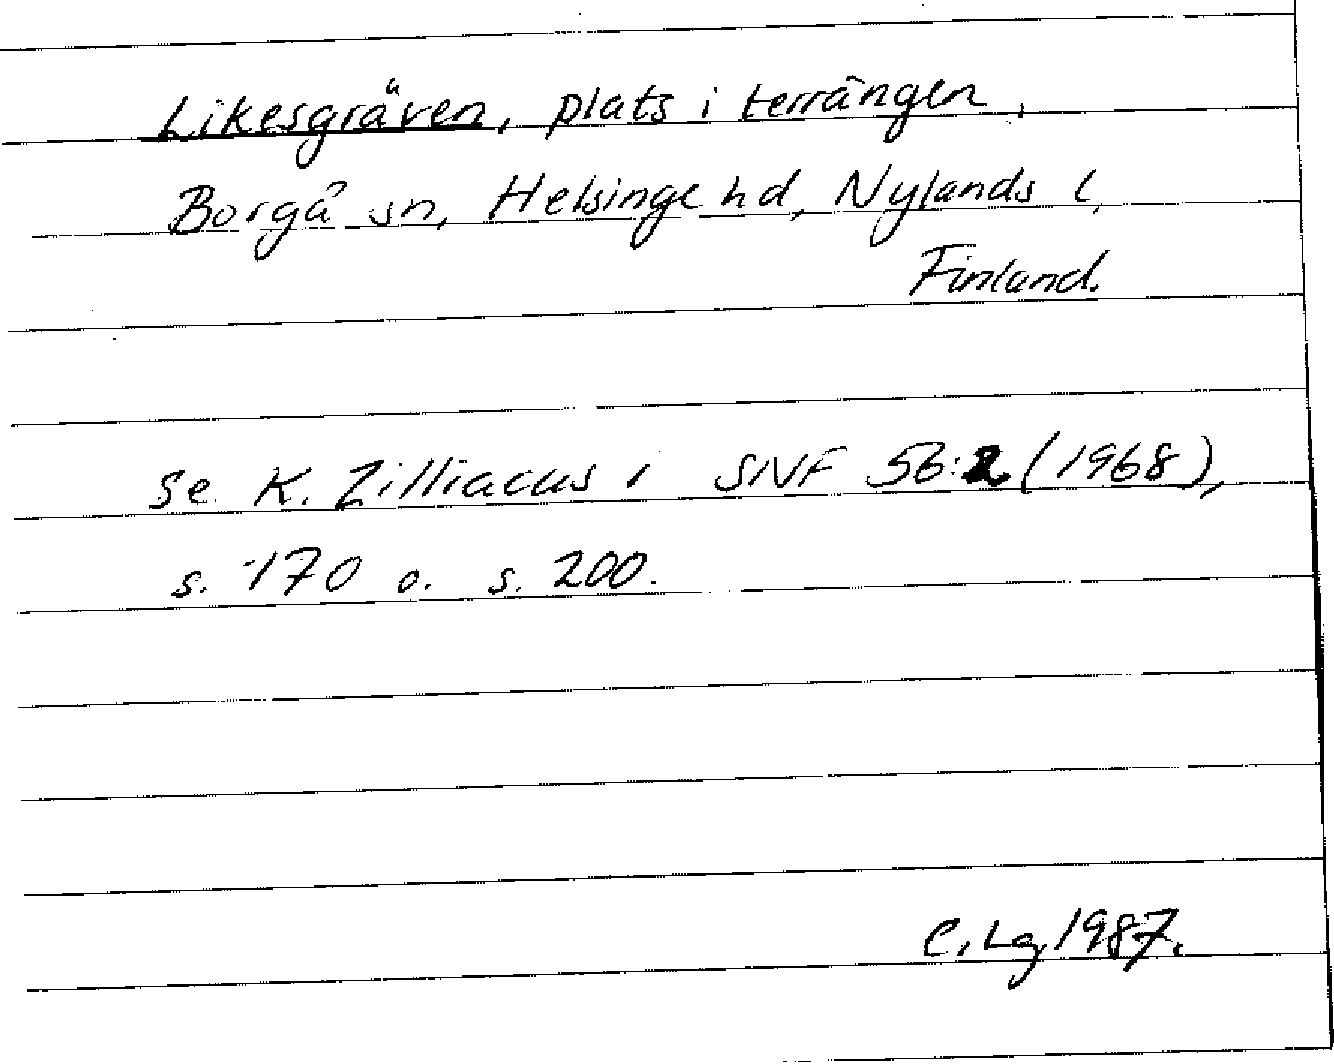 Likesgräven, plats i terrängen,
Borgå sn, Helsinge hd, Nylands l,
Finland.
Se K. Zilliacus i SNF 56:2 (1968),
s. 170 o. s. 200.
C. Lg. 1987.